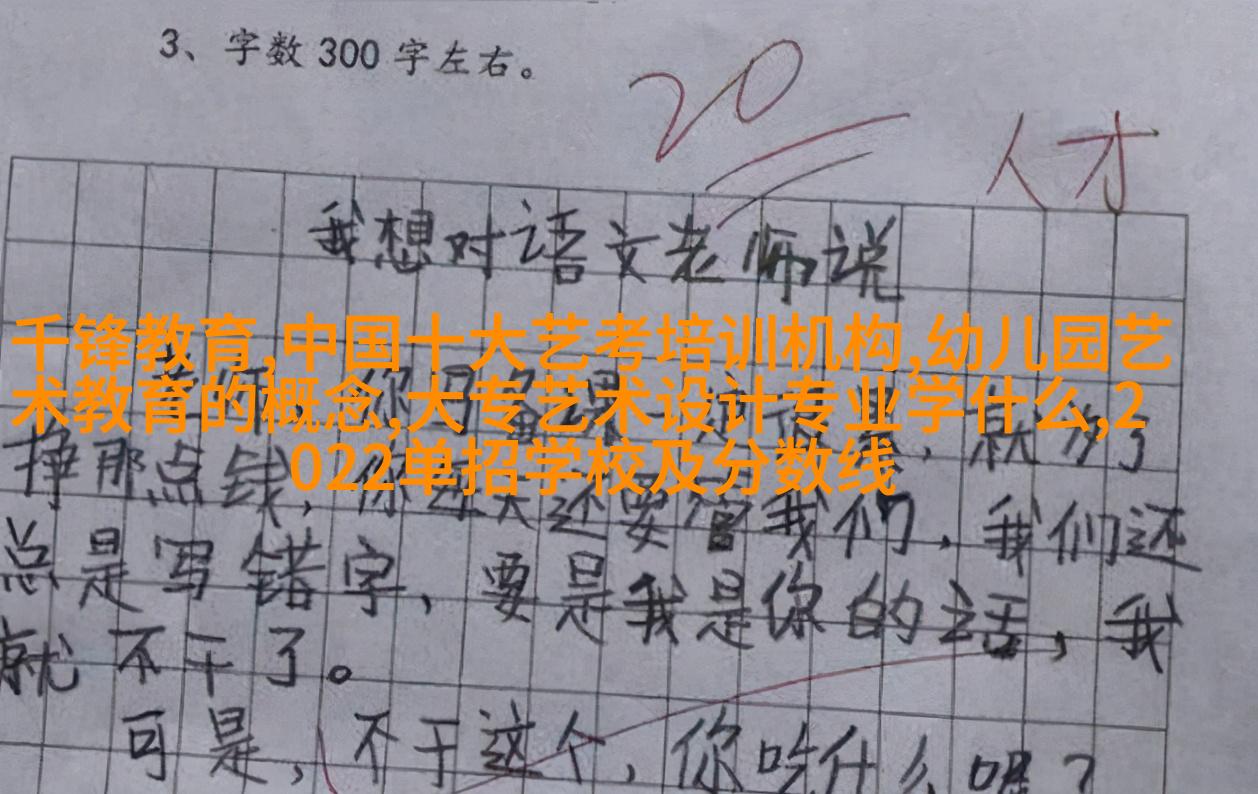 3、字数300字左右。
20
人才
我想对语文老师说
千锋教育,中国十大艺考培训机构,幼儿园艺
术教育的概念,大专艺术设计专业学什么,2
022单招学校及分数线
就为了
挣那点钱,你每天还要管我们,我们还
总是写错字,要是我是你的话,我
就不干了。
可是,不干这个,你吃什么呢?